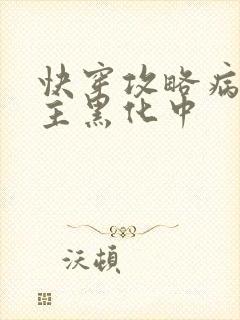 快穿攻略病
主黑化中
沃顿